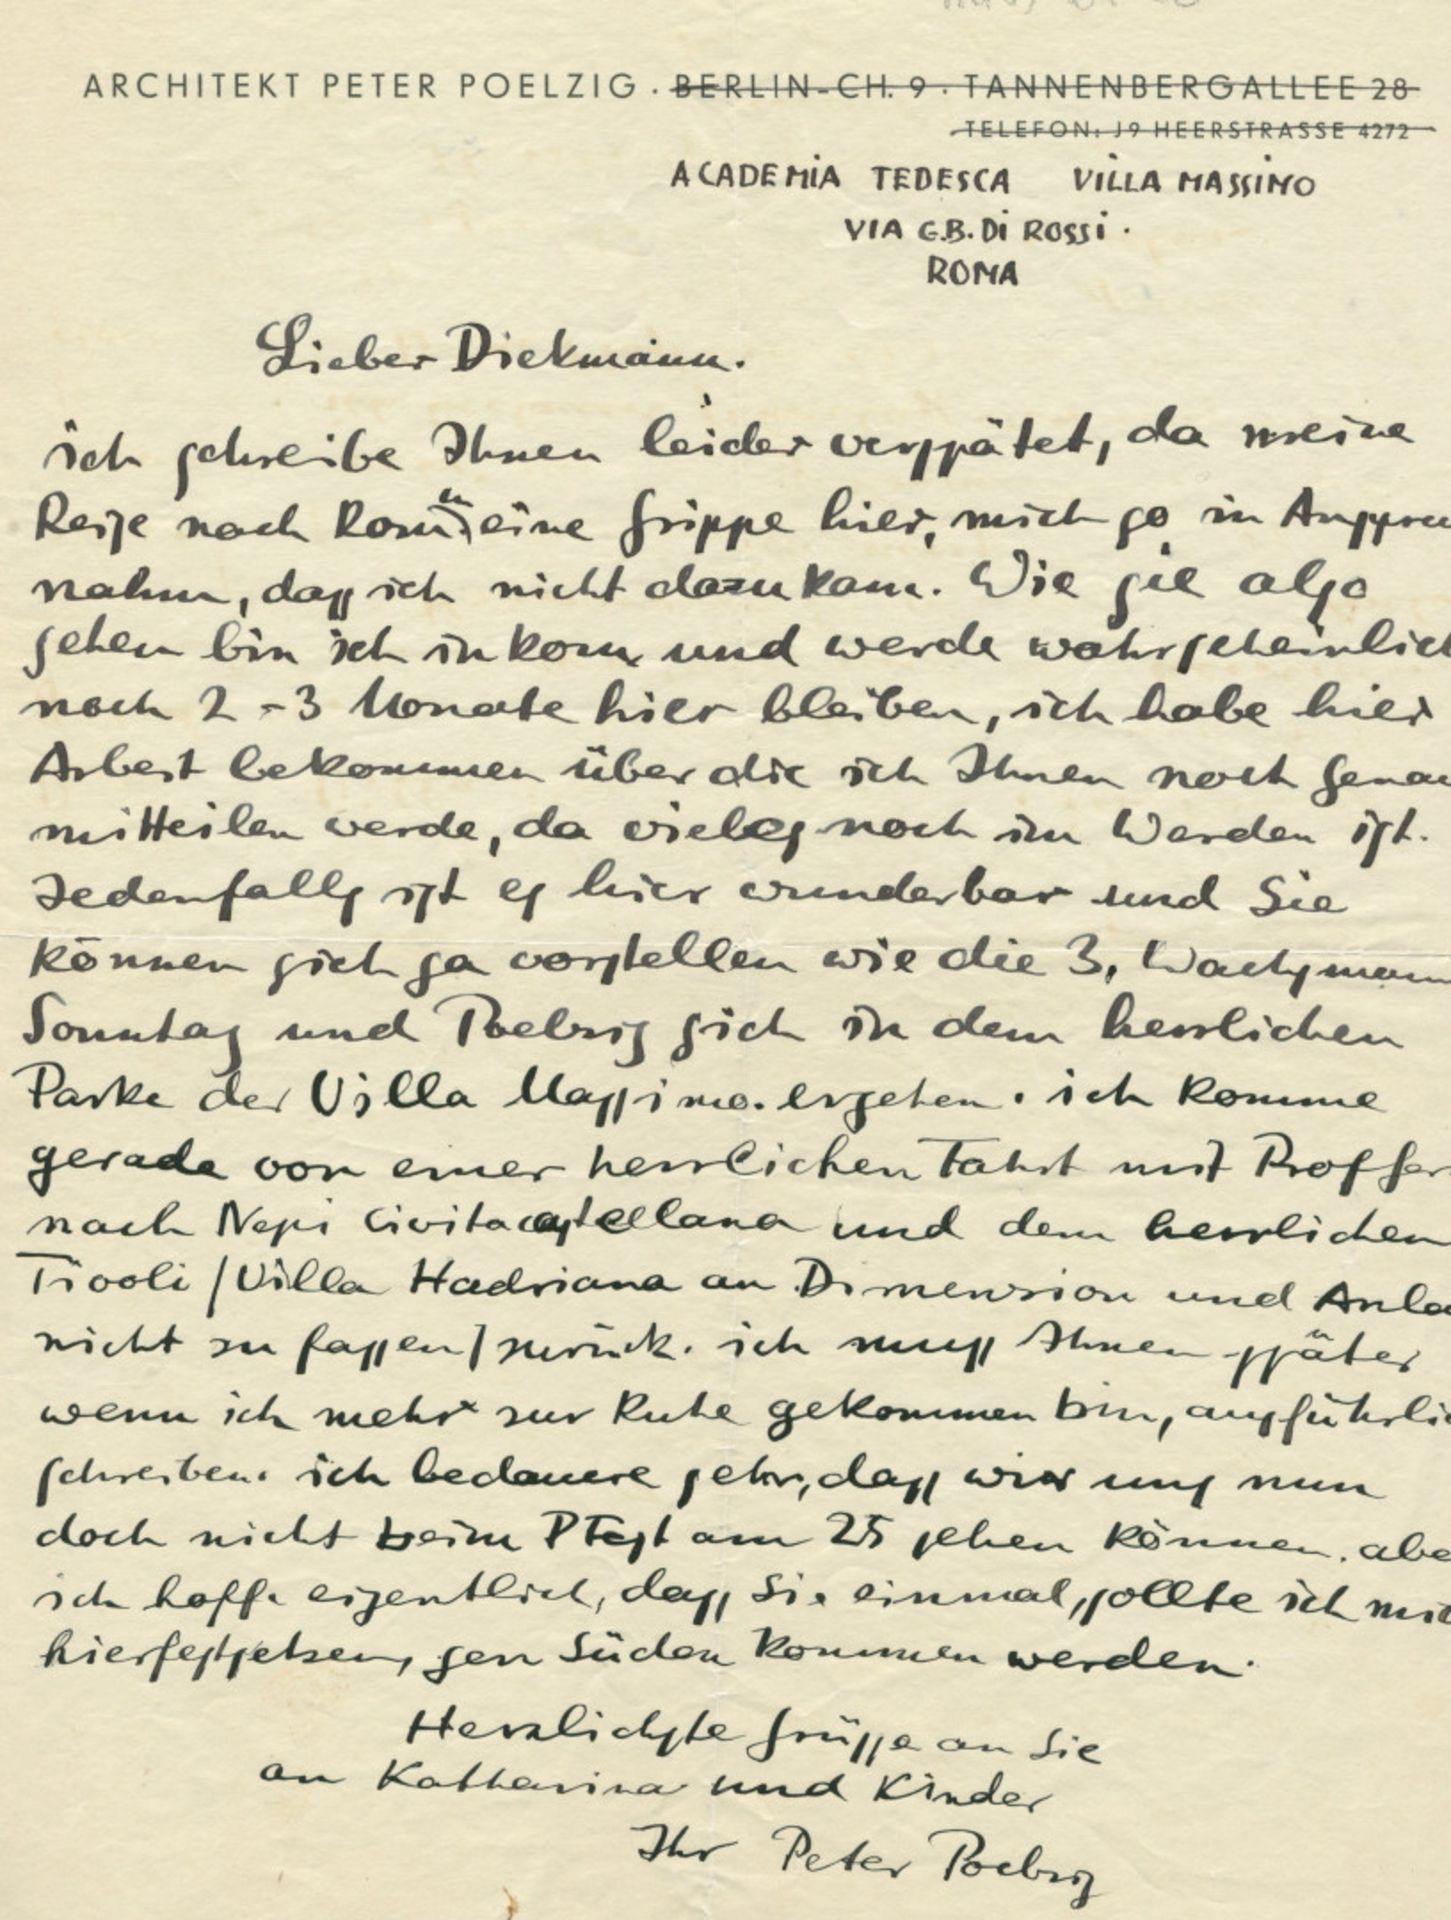 ARCHITEKT PETER POELZIG · BERLIN-CH. 9 · TANNENBERGALLEE 28
TELEFON: J9 HEERSTRASSE 4272
ACADEMIA TEDESCA VILLA MASSIMO
VIA G.B. Di ROSSi.
ROMA
Lieber Diekmann.
ich schreibe Ihnen leider verspätet, da meine
Reise nach Rom u eine Grippe hier, mich so in Anspru
nahm, dass ich nicht dazu kam. Wie sie also
sehen bin ich in Rom und werde wahrscheinlich
noch 2-3 Monate hier bleiben, ich habe hier
Arbeit bekommen über die ich Ihnen noch genau
mitteilen werde, da vieles noch im Werden ist.
Jedenfalls ist es hier wunderbar und Sie
können sich ja vorstellen wie die 3, Wachsmann
Sonntag und Poelzig sich in dem herrlichen
Parke der Villa Massimo. ergehen. ich komme
gerade von einer herrlichen Fahrt mit Proffer
nach Nepi Civitacastellana und dem herrlichen
Tivoli / Villa Hadriana an Dimension und Anla
nicht zu fassen / zurück. ich muss Ihnen später
wenn ich mehr zur Ruhe gekommen bin, ausführlic
schreiben. ich bedauere sehr, dass wir uns nun
doch nicht beim am 25 sehen können. abe
ich hoffe eigentlich, dass Sie einmal, sollte ich mich
hierfestsetzen, gen Süden kommen werden.
Herzlichste Grüsse an Sie
an Katharina und Kinder
Ihr Peter Poelzig